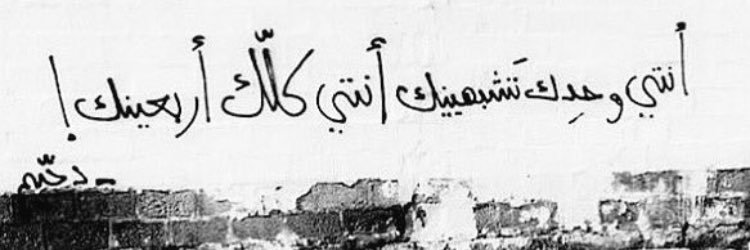 أنتي وحدِك تَشبهينك أنتي كلّك أربعينك !
- دحّيم